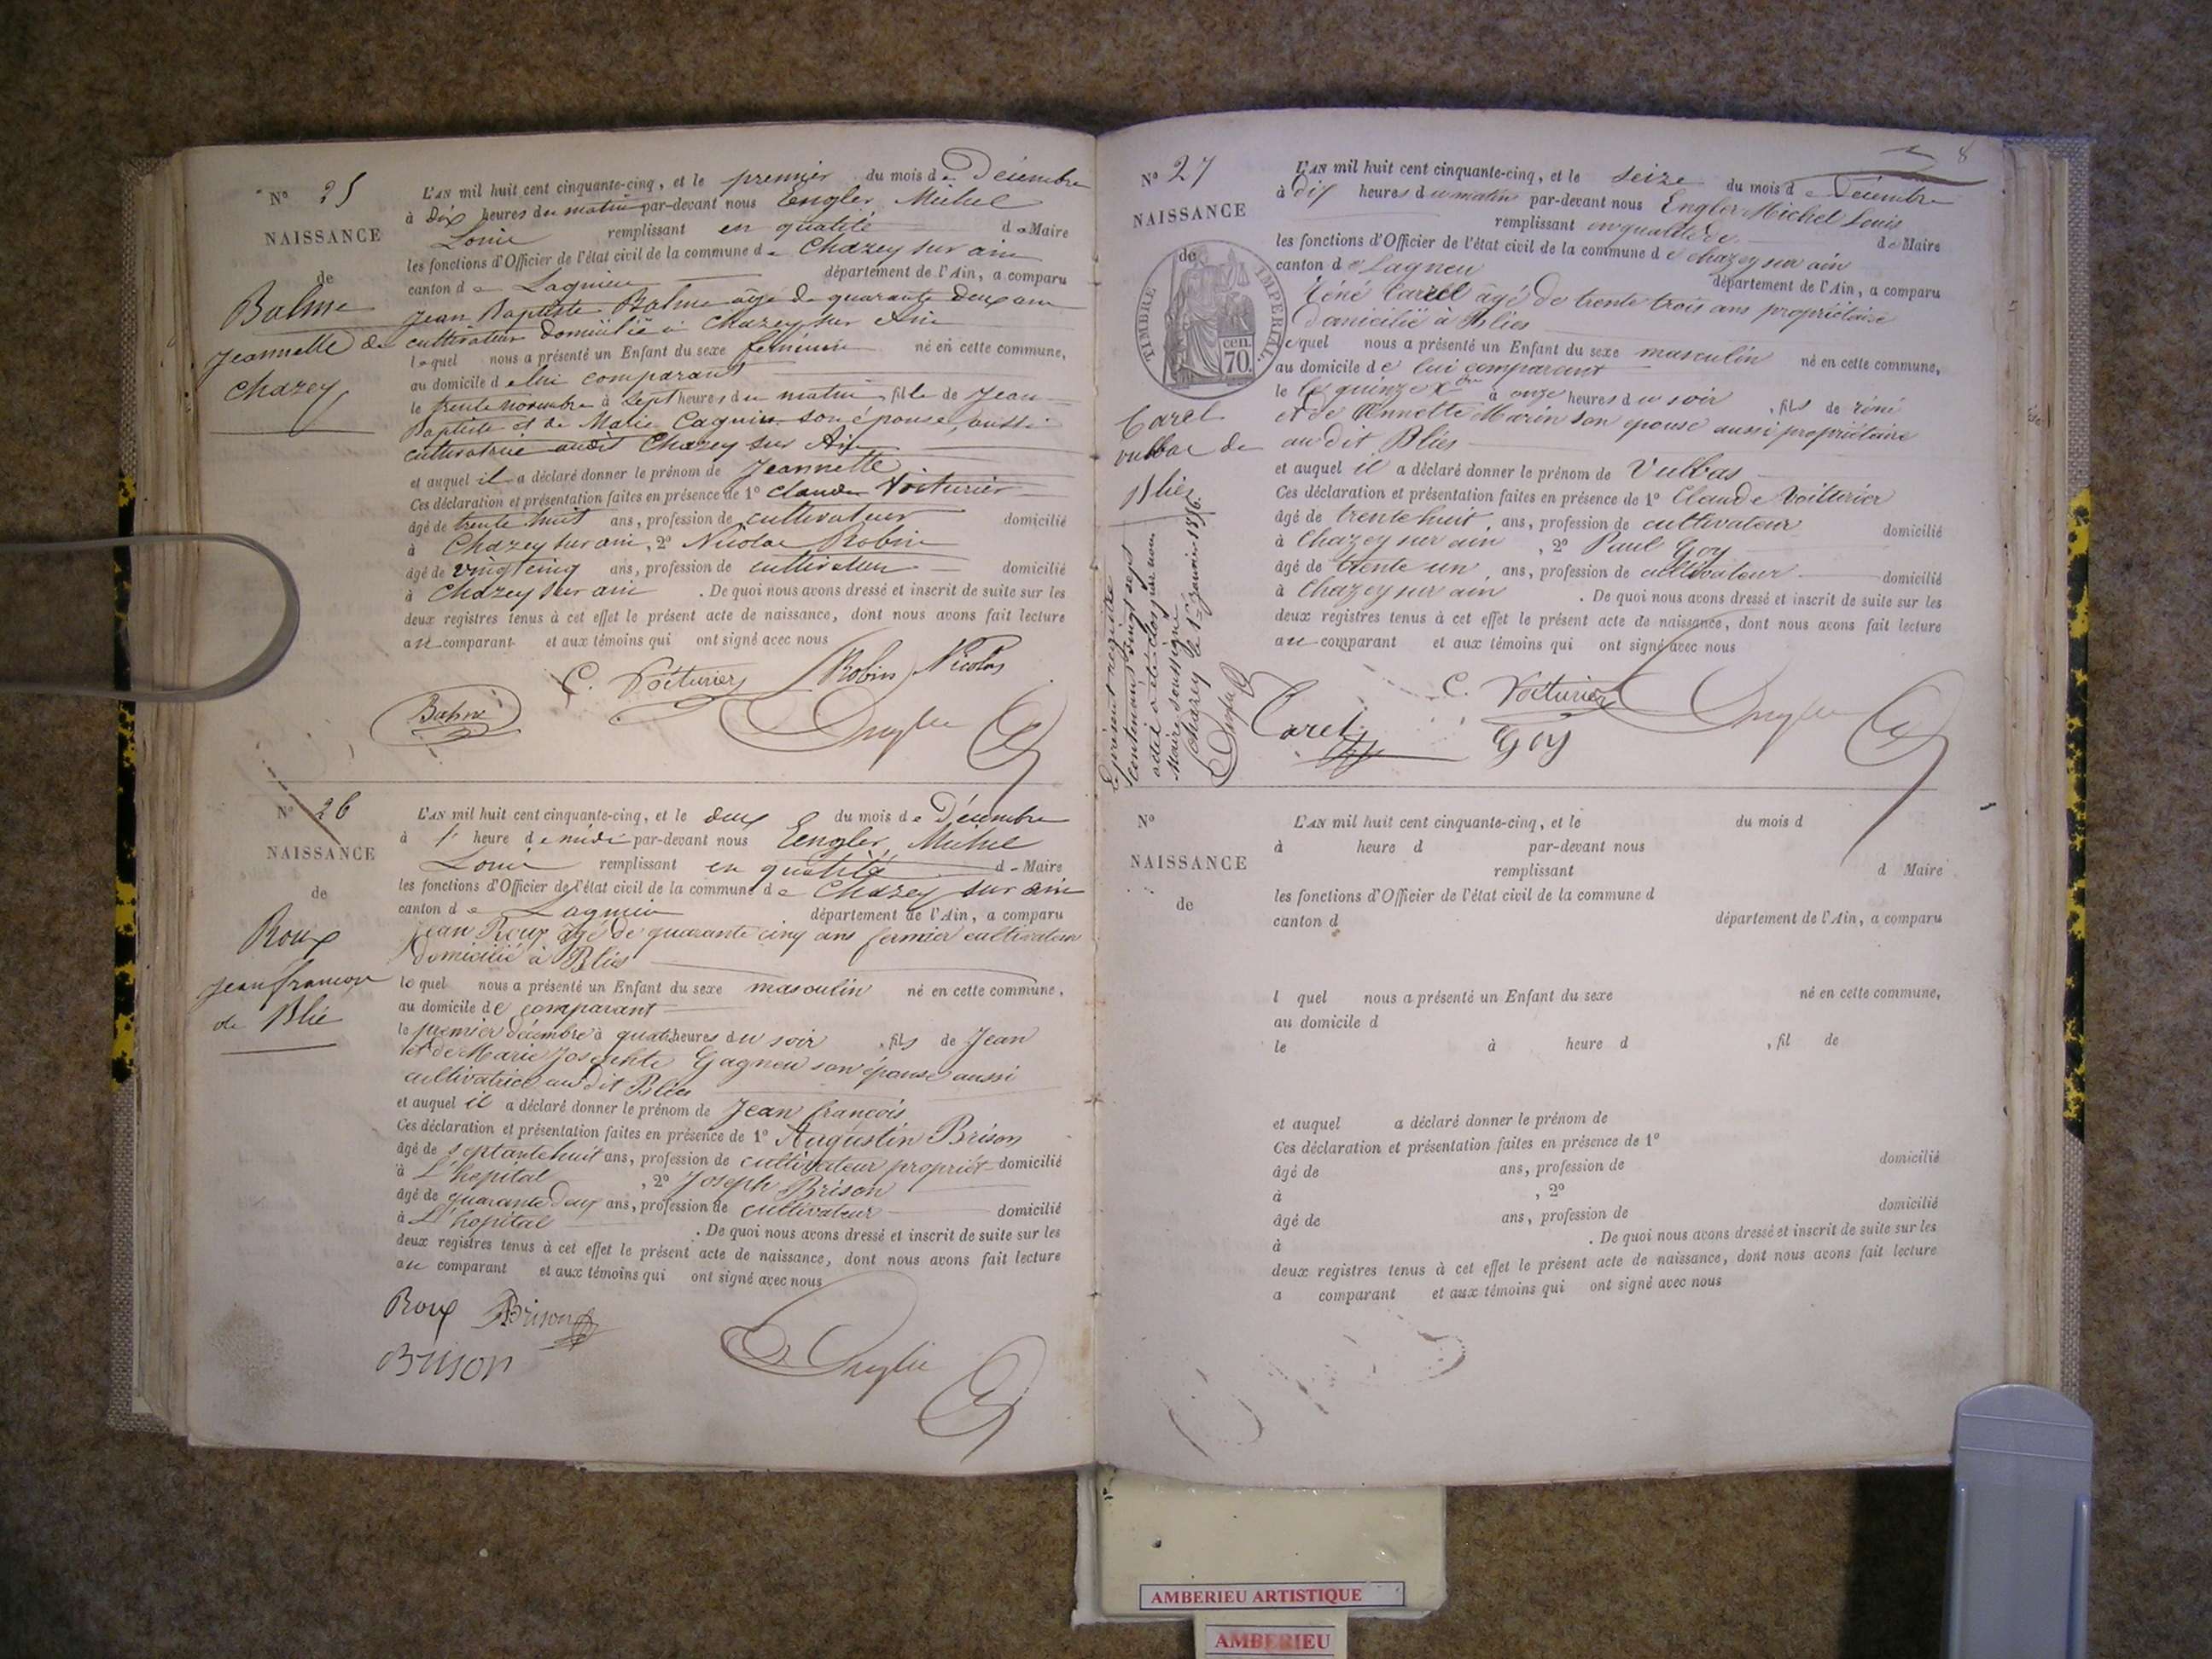 N° 25
NAISSANCE
de
Balme
Jeannette de
Chazey
L'AN mil huit cent cinquante-cinq, et le premier du mois de Décembre
à Dix heures du matin par-devant nous Engler, Michel
Louis remplissant en qualité de Maire
les fonctions d'Officier de l'état civil de la commune de Chazey sur ain
canton de Lagnieu département de l'Ain, a comparu
Jean Baptiste Balme âgé de quarante deux ans
cultivateur domicilié à Chazey sur Ain
lequel nous a présenté un Enfant du sexe feminin né en cette commune,
au domicile de lui comparant
le trente novembre à sept heures du matin, fille de Jean
Baptiste et de Marie Cagnin son épouse, aussi
cultivatrice audit Chazey sur Ain
et auquel il a déclaré donner le prénom de Jeannette
Ces déclaration et présentation faites en présence de 1° Claude Voiturier
âgé de trente huit ans, profession de cultivateur domicilié
à Chazey sur ain, 2° Nicolas Robin
âgé de vingt cinq ans, profession de cultivateur domicilié
à Chazey sur ain . De quoi nous avons dressé et inscrit de suite sur les
deux registres tenus à cet effet le présent acte de naissance, dont nous avons fait lecture
au comparant et aux témoins qui ont signé avec nous
C. Voiturier Robin Nicolas
Balme
N° 26
NAISSANCE
de
Roux
Jean françois
de Blie
L'AN mil huit cent cinquante-cinq, et le deux du mois de Décembre
à 1 heure de midi par-devant nous Engler, Michel
Louis remplissant en qualité de Maire
les fonctions d'Officier de l'état civil de la commune de Chazey sur ain
canton de Lagnieu département de l'Ain, a comparu
Jean Roux âgé de quarante cinq ans fermier cultivateur
domicilié à Blies
lequel nous a présenté un Enfant du sexe masculin né en cette commune,
au domicile de comparant
le premier décembre à quatre heures du soir, fils de Jean
et de Marie Josephte Gagneu son épouse aussi
cultivatrice au dit Blies
et auquel il a déclaré donner le prénom de Jean françois
Ces déclaration et présentation faites en présence de 1° Augustin Brison
âgé de septante huit ans, profession de cultivateur propriét domicilié
à L'hopital, 2° Joseph Brison
âgé de quarante deux ans, profession de cultivateur domicilié
à L'hopital . De quoi nous avons dressé et inscrit de suite sur les
deux registres tenus à cet effet le présent acte de naissance, dont nous avons fait lecture
au comparant et aux témoins qui ont signé avec nous
Roux Brison
Brison
8
N° 27
NAISSANCE
de
TIMBRE IMPERIAL.
cen.
70.
Carel
vulbas de
Blies
L'AN mil huit cent cinquante-cinq, et le seize du mois de Décembre
à dix heures du matin par-devant nous Engler Michel Louis
remplissant en qualité de de Maire
les fonctions d'Officier de l'état civil de la commune de chazey sur ain
canton de Lagneu département de l'Ain, a comparu
Réné Carel âgé de trente trois ans propriétaire
domicilié à Blies
lequel nous a présenté un Enfant du sexe masculin né en cette commune,
au domicile de lui comparant
le le quinze Xbre à onze heures du soir, fils de réné
et de Annette Marin son epouse aussi propriétaire
au dit Blies
et auquel il a déclaré donner le prénom de Vulbas
Ces déclaration et présentation faites en présence de 1° Claude Voiturier
âgé de trente huit, ans, profession de cultivateur domicilié
à Chazey sur ain, 2° Paul Goy
âgé de trente un, ans, profession de cultivateur domicilié
à Chazey sur ain . De quoi nous avons dressé et inscrit de suite sur les
deux registres tenus à cet effet le présent acte de naissance, dont nous avons fait lecture
au comparant et aux témoins qui ont signé avec nous
C. Voiturier
Carel Goy
Le présent registre
contenant vingt sept
actes a été clos par nous
Maire soussigné
Chazey le 1er janvier 1856.
N°
NAISSANCE
de
L'AN mil huit cent cinquante-cinq, et le du mois d
à heure d par-devant nous
remplissant d Maire
les fonctions d'Officier de l'état civil de la commune d
canton d département de l'Ain, a comparu
l quel nous a présenté un Enfant du sexe né en cette commune,
au domicile d
le à heure d , fil de
et auquel a déclaré donner le prénom de
Ces déclaration et présentation faites en présence de 1°
âgé de ans, profession de domicilié
à , 2°
âgé de ans, profession de domicilié
à . De quoi nous avons dressé et inscrit de suite sur les
deux registres tenus à cet effet le présent acte de naissance, dont nous avons fait lecture
a comparant et aux témoins qui ont signé avec nous
AMBERIEU ARTISTIQUE
AMBERIEU